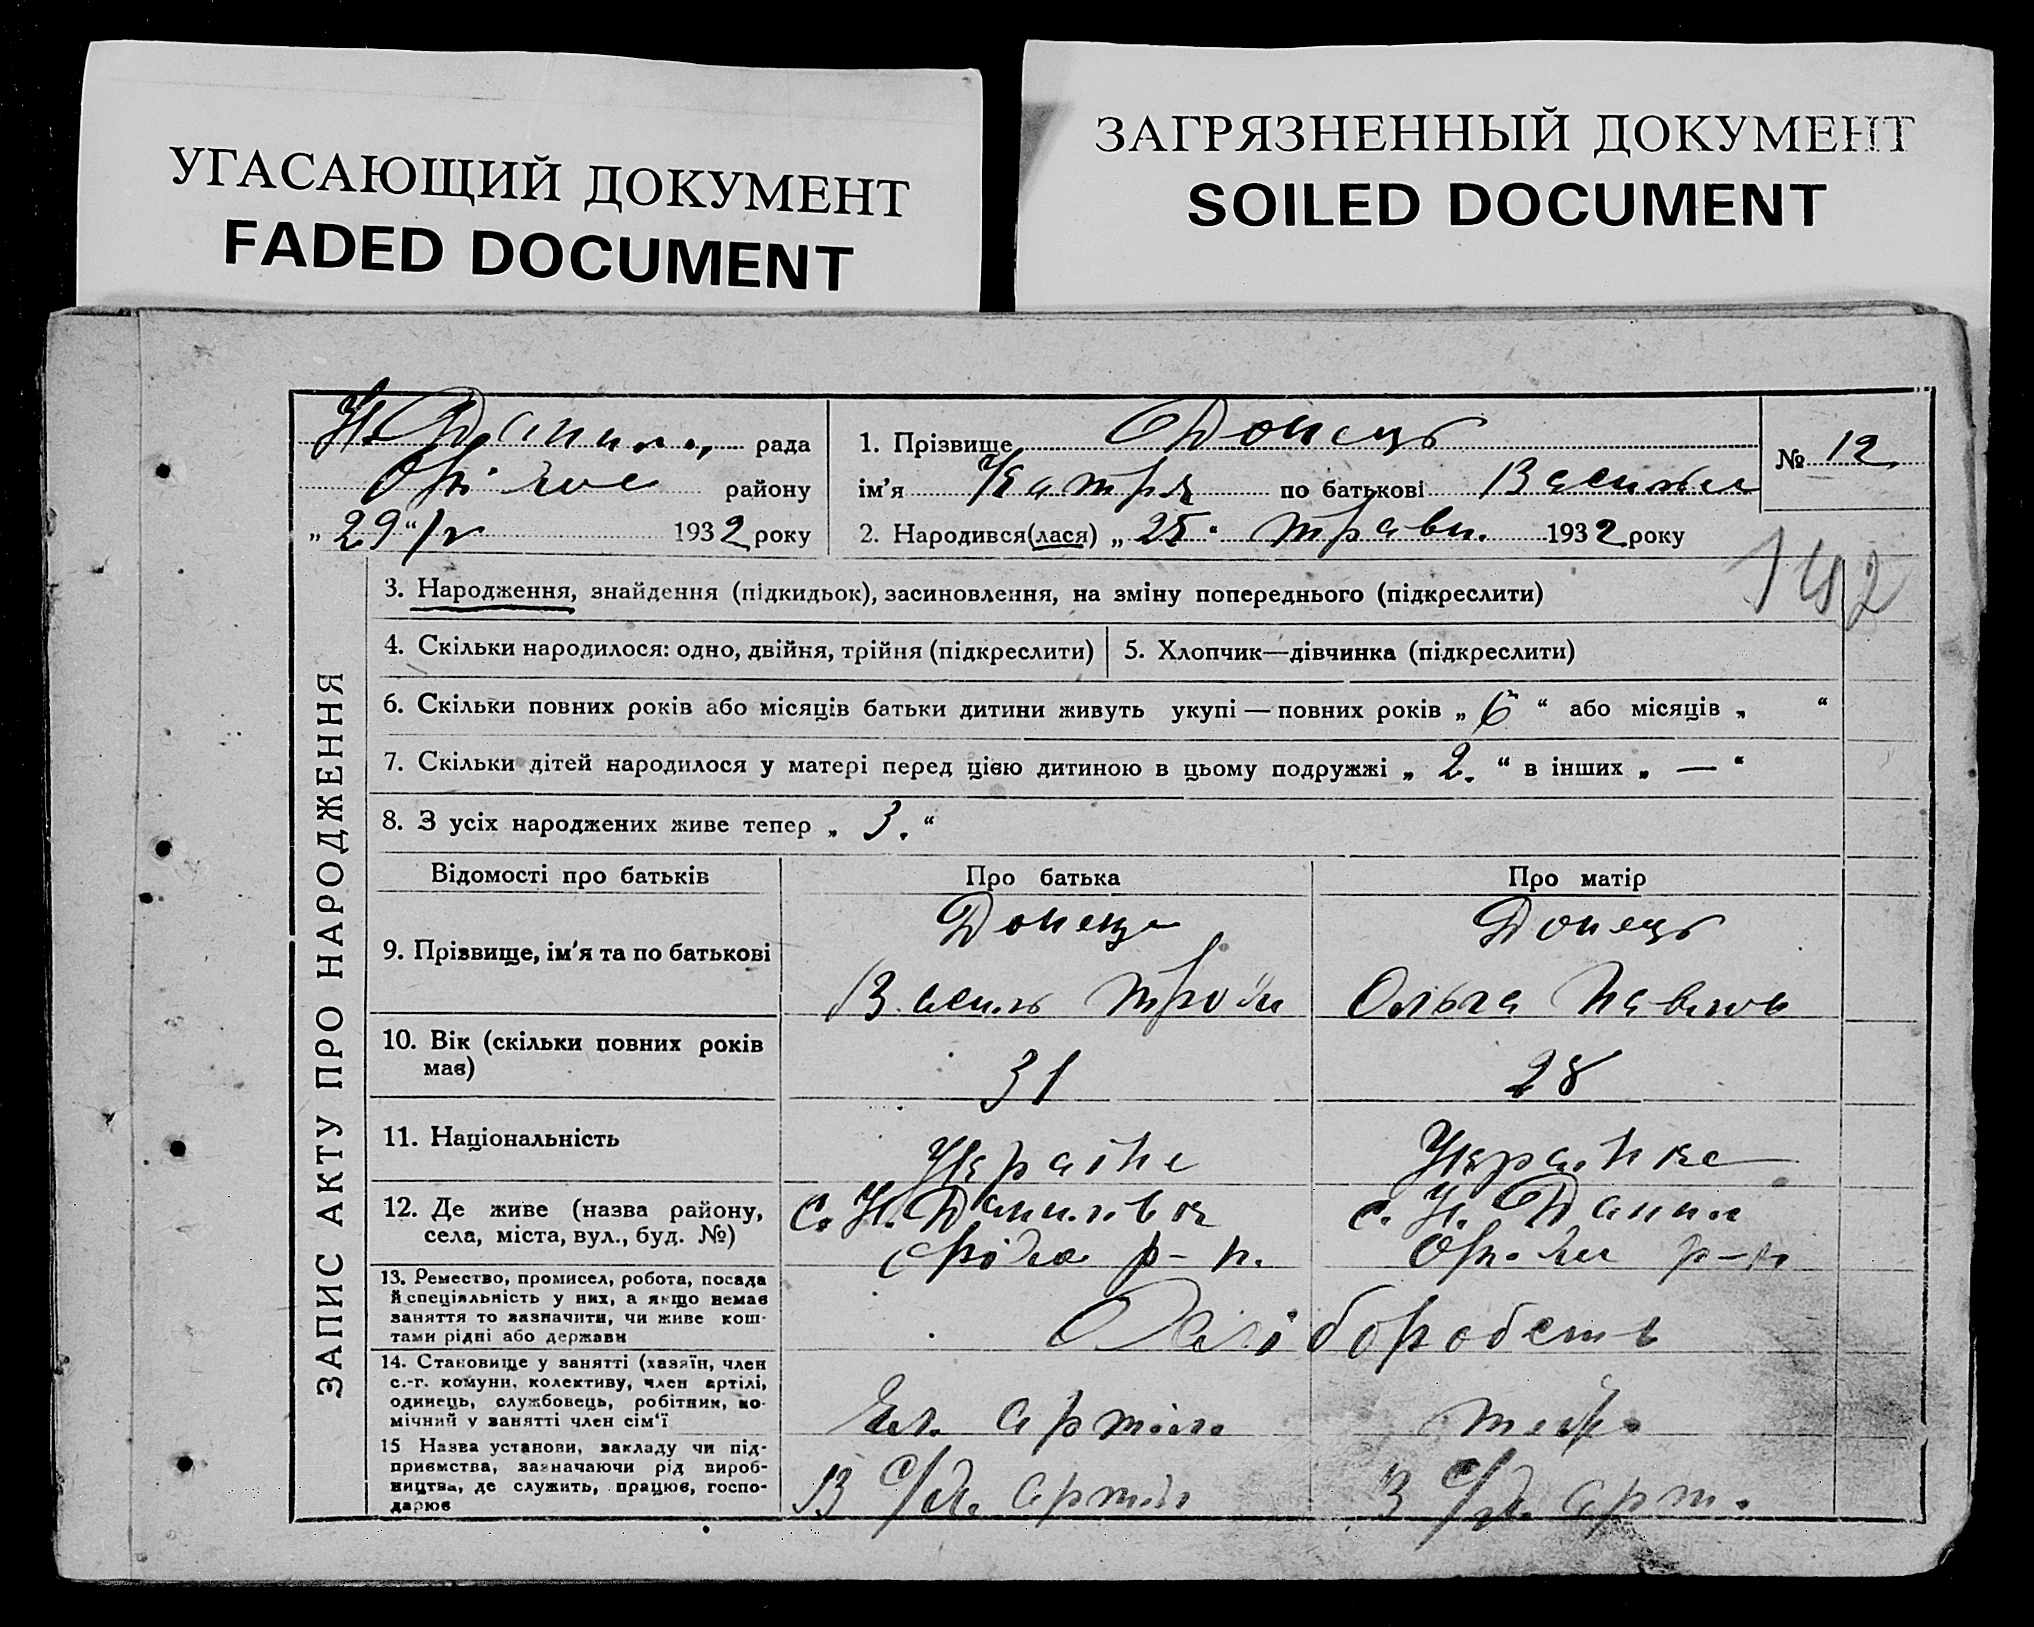 УГАСАЮЩИЙ ДОКУМЕНТ
FADED DOCUMENT
ЗАГРЯЗНЕННЫЙ ДОКУМЕНТ
SOILED DOCUMENT
Н. Данил., рада
району
„ 29 “ /V 1932 року
1. Прізвище Донець
ім’я Катря по батькові Василів
2. Народився(лася) „ 25 “ травн. 1932 року
№ 12
142
ЗАПИС АКТУ ПРО НАРОДЖЕННЯ
3. Народження, знайдення (підкидьок), засиновлення, на зміну попереднього (підкреслити)
4. Скільки народилося: одно, двійня, трійня (підкреслити)
5. Хлопчик—дівчинка (підкреслити)
6. Скільки повних років або місяців батьки дитини живуть укупі — повних років „ 6 “ або місяців „ “
7. Скільки дітей народилося у матері перед цією дитиною в цьому подружжі „ 2. “ в інших „ — “
8. З усіх народжених живе тепер „ 3. “
Відомості про батьків
Про батька
Про матір
9. Прізвище, ім’я та по батькові
Донець
Василь
Донець
Ольга Павлов
10. Вік (скільки повних років має)
31
28
11. Національність
Украіне
Украінка
12. Де живе (назва району,
села, міста, вул., буд. №)
с. Н. Данилівка
р-н.
с. Н. Данил
р-н
13. Ремество, промисел, робота, посада
й спеціяльність у них, а якщо немає
заняття то зазначити, чи живе кош-
тами рідні або держави
Хліборобств
14. Становище у занятті (хазяїн, член
с.-г. комуни, колективу, член артілі,
одинець, службовець, робітник, по-
мічний у занятті член сім’ї
Чл. артіли
теж
15 Назва установи, закладу чи під-
приємства, зазначаючи рід вироб-
ництва, де служить, працює, госпо-
дарює
В с/г. артілі
В с/г. арт.